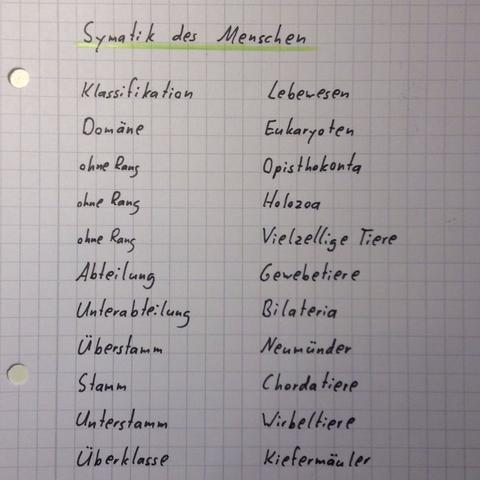 Symatik des Menschen
Klassifikation Lebewesen
Domäne Eukaryoten
ohne Rang Opisthokonta
ohne Rang Holozoa
ohne Rang Vielzellige Tiere
Abteilung Gewebetiere
Unterabteilung Bilateria
Überstamm Neumünder
Stamm Chordatiere
Unterstamm Wirbeltiere
Überklasse Kiefermäuler